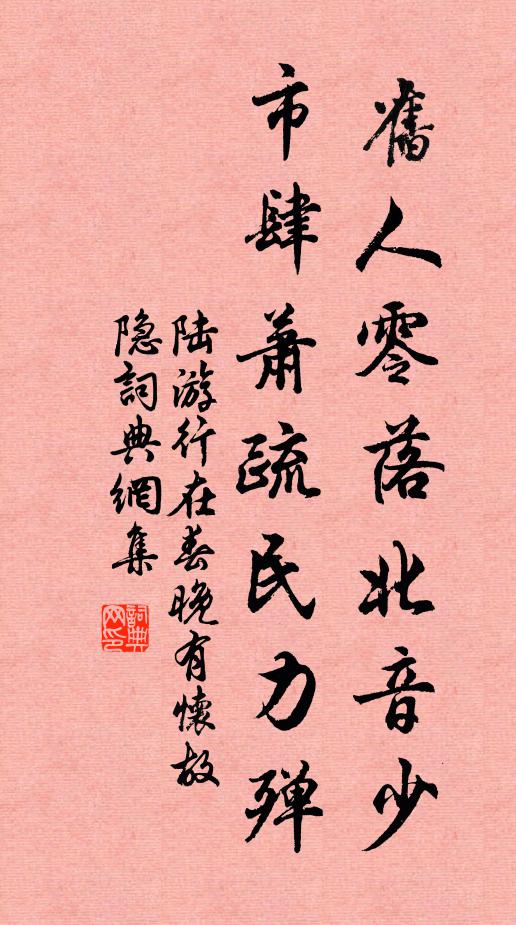 舊人零落北音少
市肆蕭疏民力殫
陆游行在春晚有懷故
隐詞典網集
詞典
网印